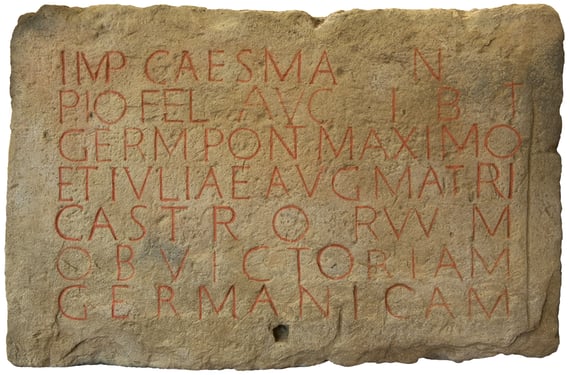 IMP CAES MA N
PIO FEL AVG I B T
GERM PON MAXIMO
ET IVLIAE AVG MATRI
CASTRORVVM
OB VICTORIAM
GERMANICAM